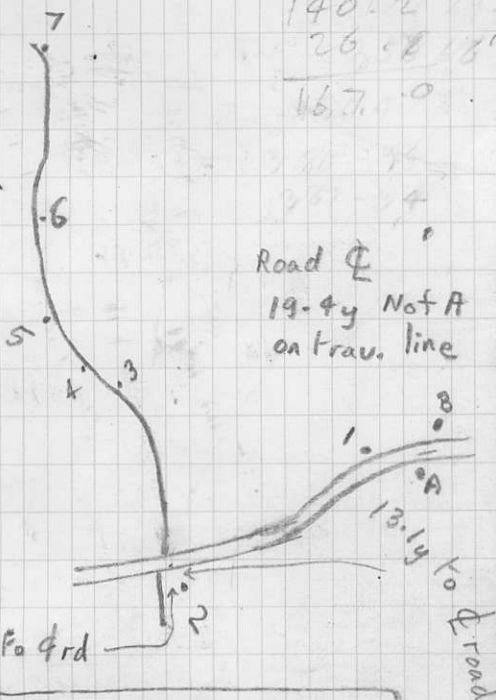 7
140.2
26
116.7.0
6
Road ℄
19-4y Nof A
on trav. line
5
4
3
B
1
A
13.1y to ℄ road
2
Fo ℄ rd